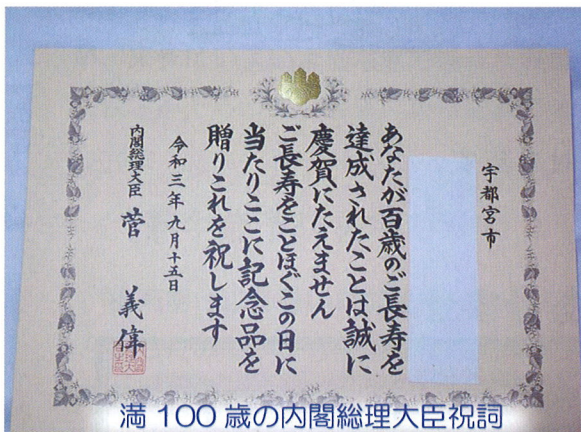 宇都宮市
あなたが百歳のご長寿を
達成されたことは誠に
慶賀にたえません
ご長寿をことほぐこの日に
当たりここに記念品を
贈りこれを祝します
令和三年九月十五日
内閣総理大臣 菅 義偉
満 100 歳の内閣総理大臣祝詞